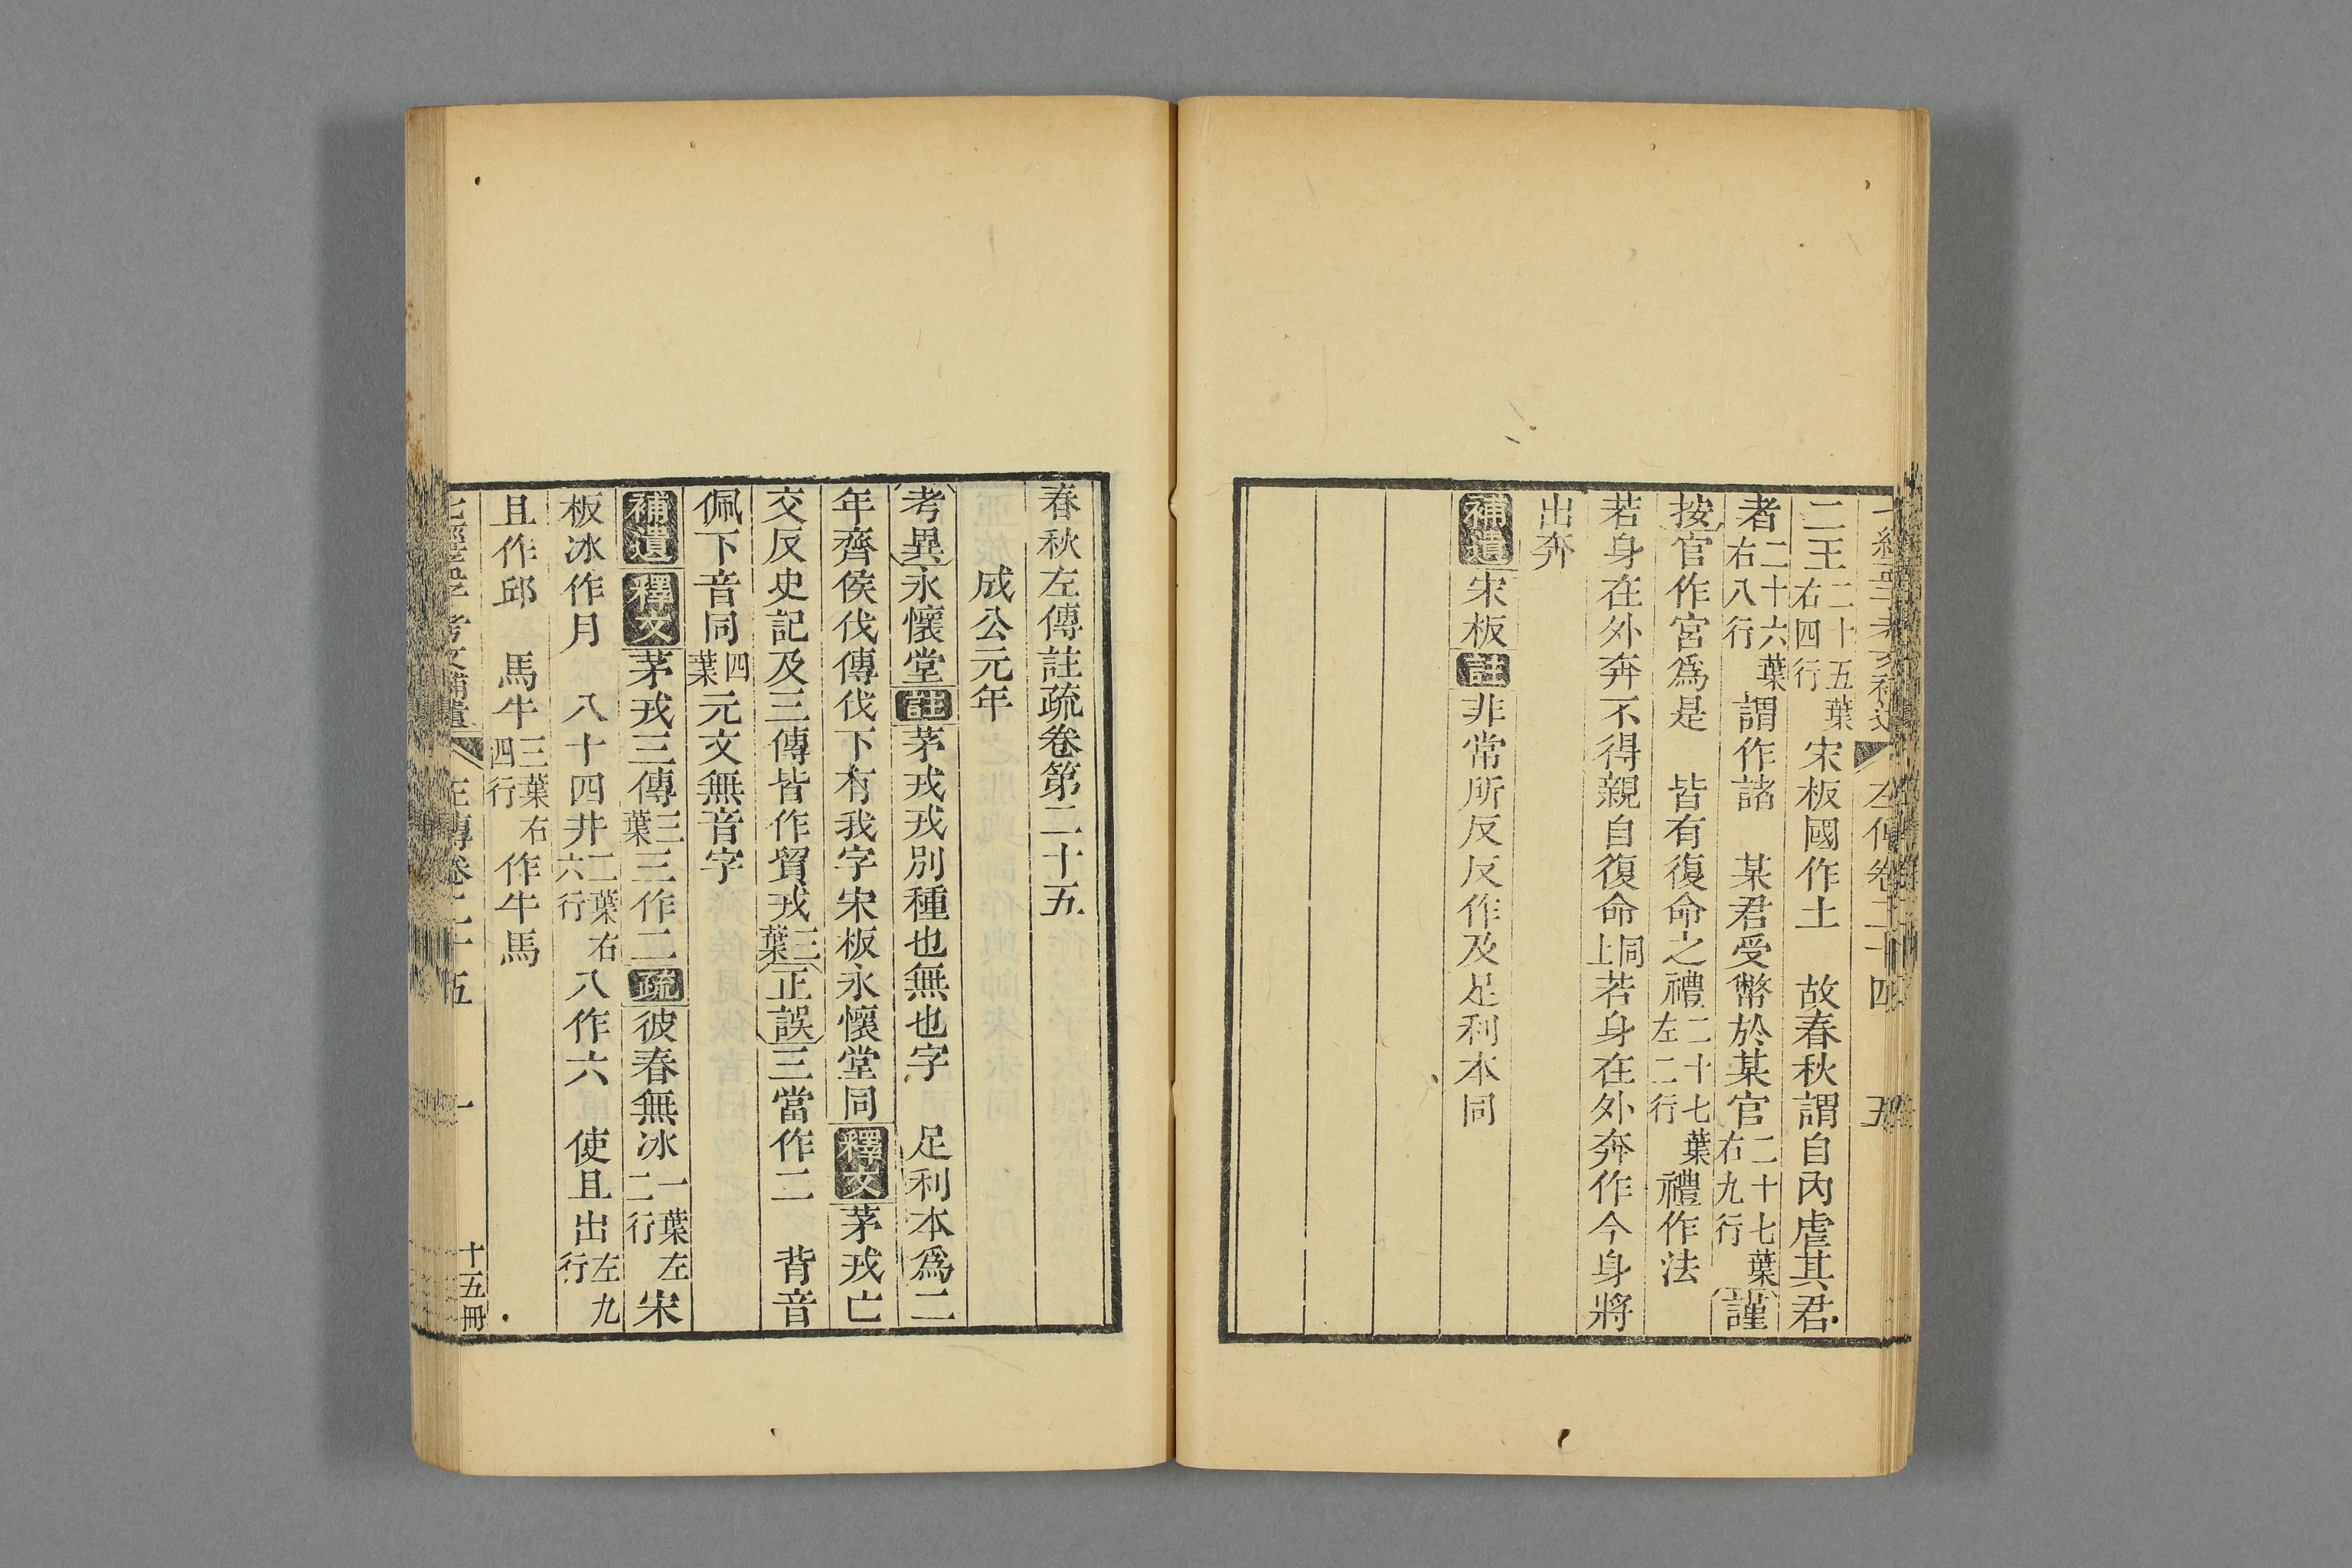 二王二十五葉右四行宋板國作土　故春秋謂自內虐其君
者二十六葉右八行謂作諸　某君受幣於某官二十七葉右九行謹
按官作宮爲是　皆有復命之禮二十七葉左二行禮作法
若身在外奔不得親自復命同上若身在外奔作今身將
出奔
補遺宋板註非常所反反作及足利本同
春秋左傳註疏卷第二十五
成公元年
考異永懷堂註茅戎戎別種也無也字　足利本爲二
年齊侯伐傳伐下有我字宋板永懷堂同釋文茅戎亡
交反史記及三傳皆作貿戎三葉正誤三當作二　背音
佩下音同四葉元文無音字
補遺釋文茅戎三傳三葉三作二疏彼春無冰一葉左二行宋
板冰作月　八十四井二葉右六行八作六　使且出左九行
且作邱　馬牛三葉右四行作牛馬
左傳卷二十五　一　十五冊